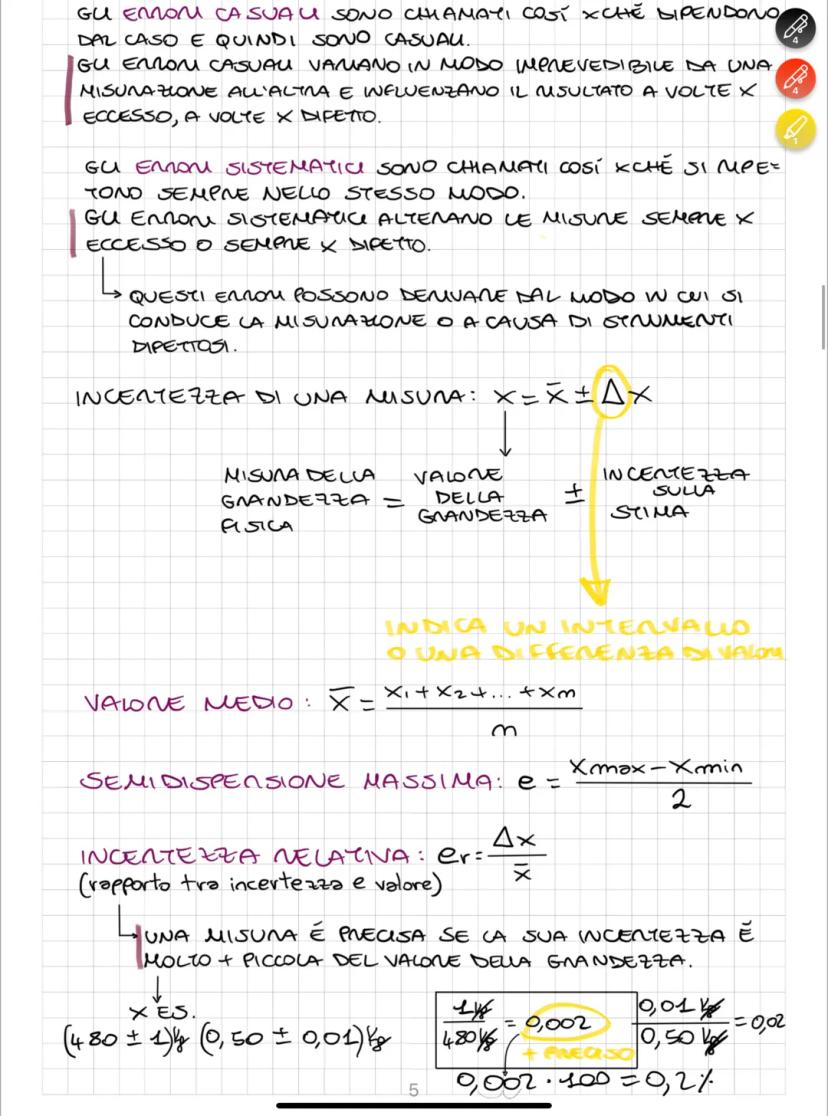 GLI ERRORI CASUALI SONO CHIAMATI COSÍ XCHÉ DIPENDONO
DAL CASO E QUINDI SONO CASUALI.
GLI ERRORI CASUALI VARIANO IN MODO IMPREVEDIBILE DA UNA
MISURAZIONE ALL'ALTRA E INFLUENZANO IL RISULTATO A VOLTE X
ECCESSO, A VOLTE X DIFETTO.
GLI ERRORI SISTEMATICI SONO CHIAMATI COSÍ XCHÉ SI RIPE=
TONO SEMPRE NELLO STESSO MODO.
GLI ERRORI SISTEMATICI ALTERANO LE MISURE SEMPRE X
ECCESSO O SEMPRE X DIFETTO.
↳ QUESTI ERRORI POSSONO DERIVARE DAL MODO IN CUI SI
CONDUCE LA MISURAZIONE O A CAUSA DI STRUMENTI
DIFETTOSI.
INCERTEZZA DI UNA MISURA: x = x̄ ± Δx
MISURA DELLA GRANDEZZA FISICA = VALORE DELLA GRANDEZZA ± INCERTEZZA SULLA STIMA
INDICA UN INTERVALLO
O UNA DIFFERENZA DI VALORI
VALORE MEDIO: x̄ = (x₁ + x₂ + ... + xm) / m
SEMIDISPERSIONE MASSIMA: e = (xmax - xmin) / 2
INCERTEZZA RELATIVA: er = Δx / x̄
(rapporto tra incertezza e valore)
↳ UNA MISURA É PRECISA SE LA SUA INCERTEZZA É
MOLTO + PICCOLA DEL VALORE DELLA GRANDEZZA.
X ES.
(480 ± 1)kg (0,50 ± 0,01)kg
1kg / 480kg = 0,002
+ PRECISO
0,01 kg / 0,50 kg = 0,02
0,002 · 100 = 0,2%
5
4
4
1